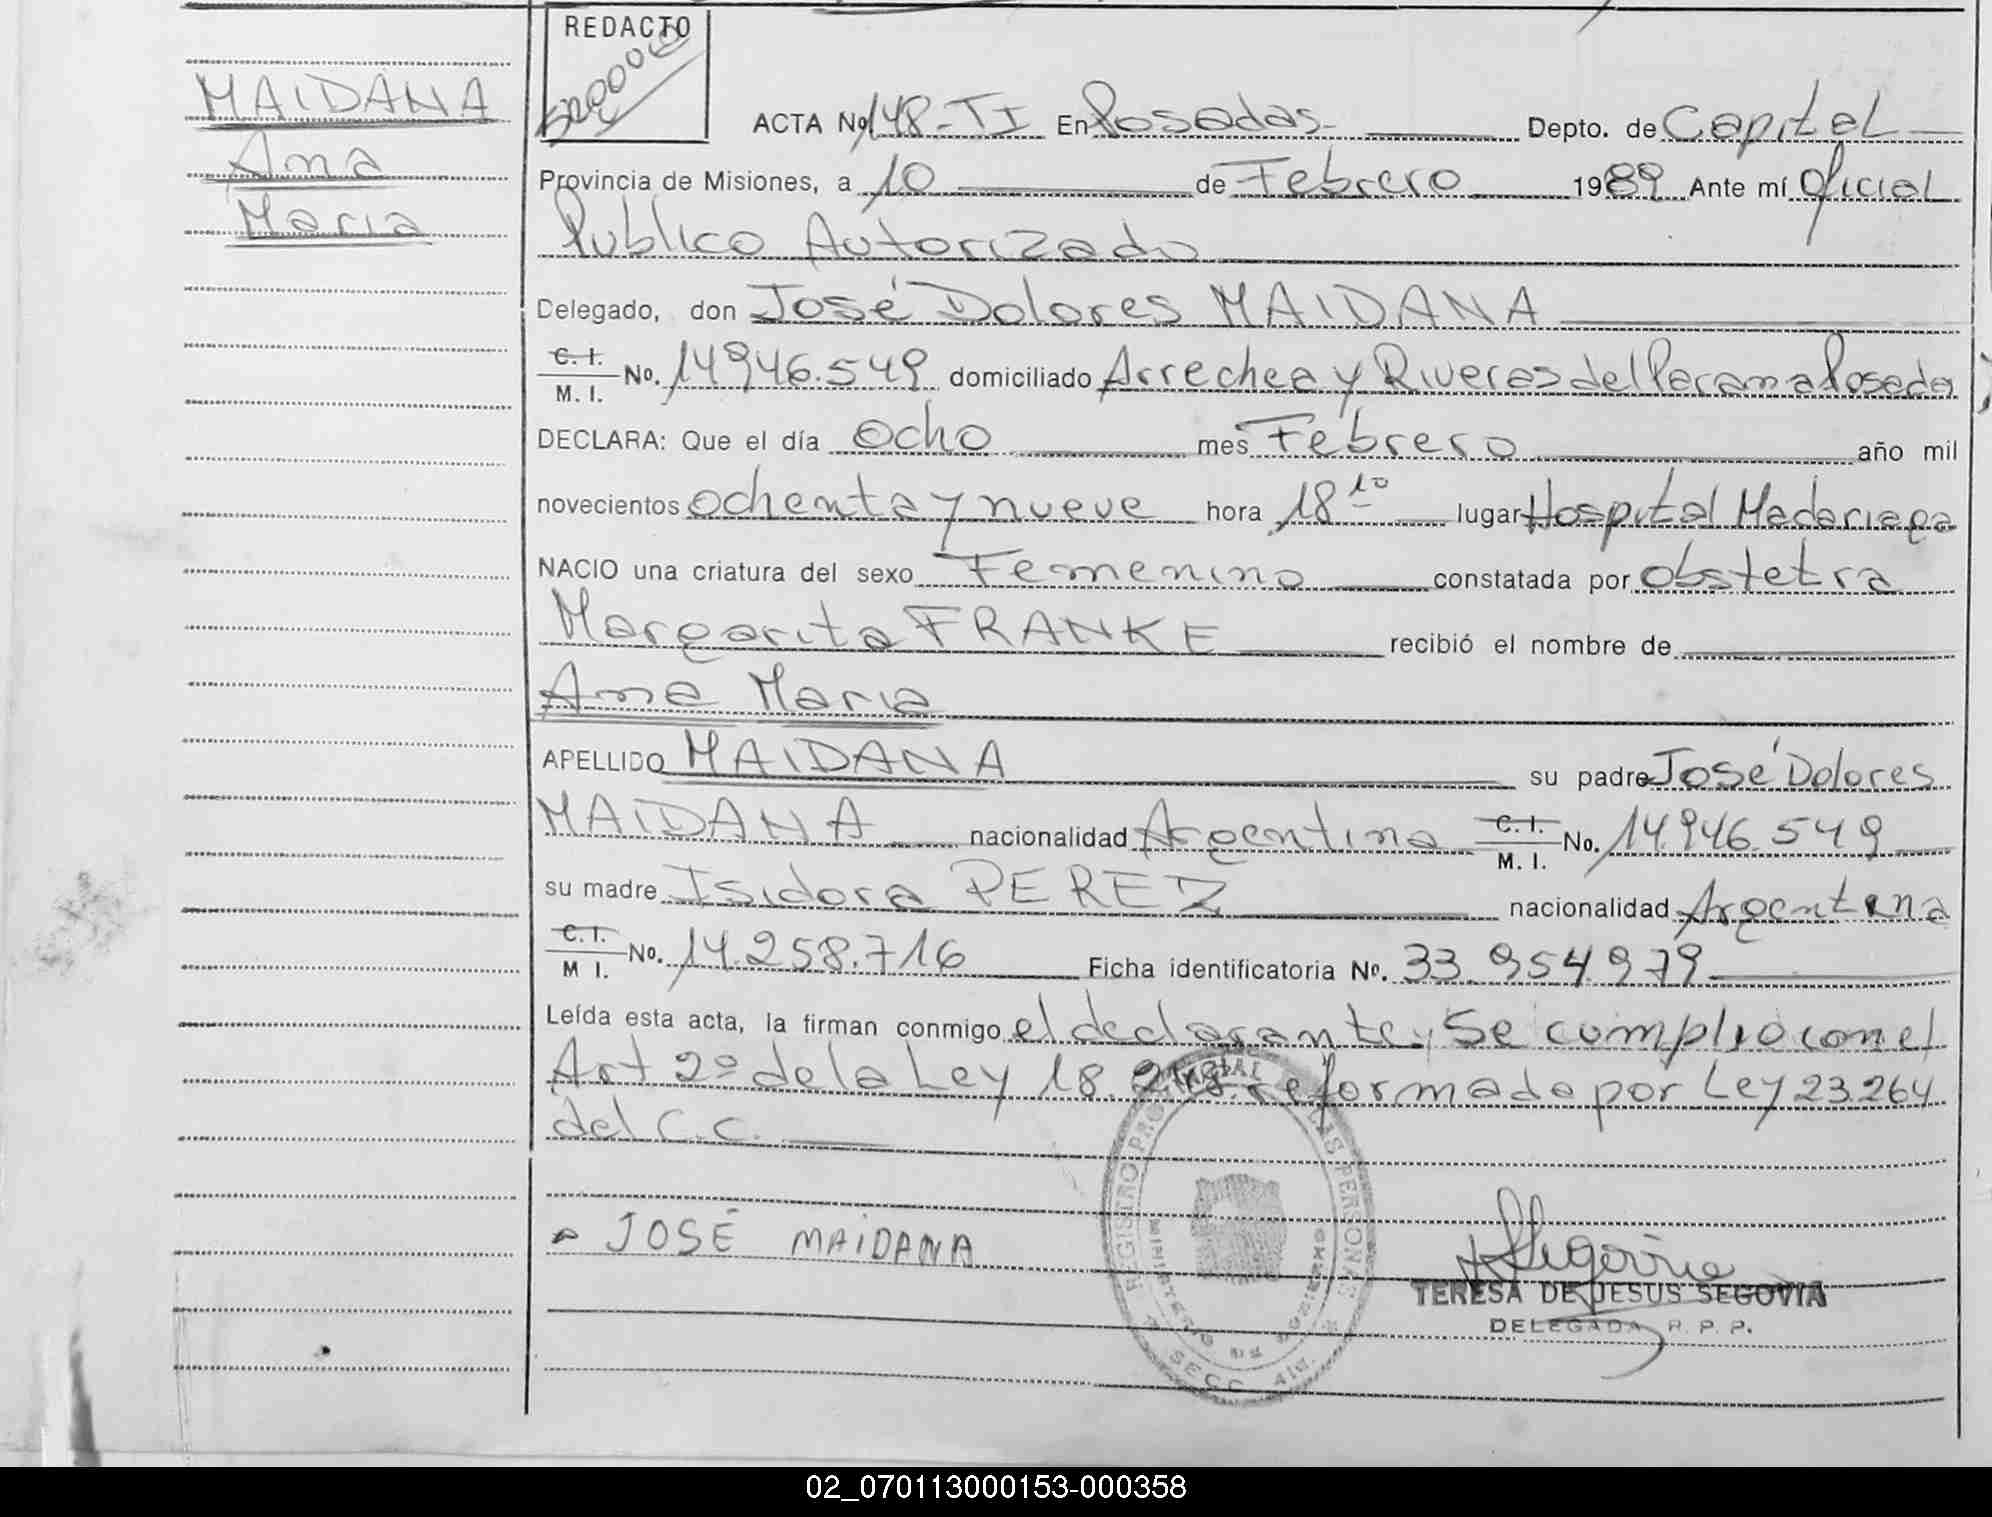 MAIDANA
Ana
Maria
REDACTO
ACTA Nº 148-TI En Posadas- Depto. de Capital
Provincia de Misiones, a 10 de Febrero 1989 Ante mí Oficial
Publico Autorizado
Delegado, don José Dolores MAIDANA
C. I. / M. I. No. 14946.549 domiciliado Arrechea y Riveras del Parana Posadas
DECLARA: Que el día ocho mes Febrero año mil
novecientos ochenta y nueve hora 18 10 lugar Hospital Madariaga
NACIO una criatura del sexo Femenino constatada por obstetra
Margarita FRANKE recibió el nombre de
Ana Maria
APELLIDO MAIDANA su padre José Dolores
MAIDANA nacionalidad Argentina C. I. / M. I. No. 14.946.549
su madre Isidora PEREZ nacionalidad Argentina
C. I. / M I. No. 14.258.716 Ficha identificatoria Nº. 33.954.979
Leída esta acta, la firman conmigo el declarante, Se cumplio con el
Art 2º de la Ley 18.248 reformado por Ley 23.264
del C.C.
JOSÉ MAIDANA
Segovia
TERESA DE JESUS SEGOVIA
DELEGADA R. P. P.
REGISTRO PROVINCIAL LAS PERSONAS
MINISTERIO DE GOBIERNO
SECC.
02_070113000153-000358